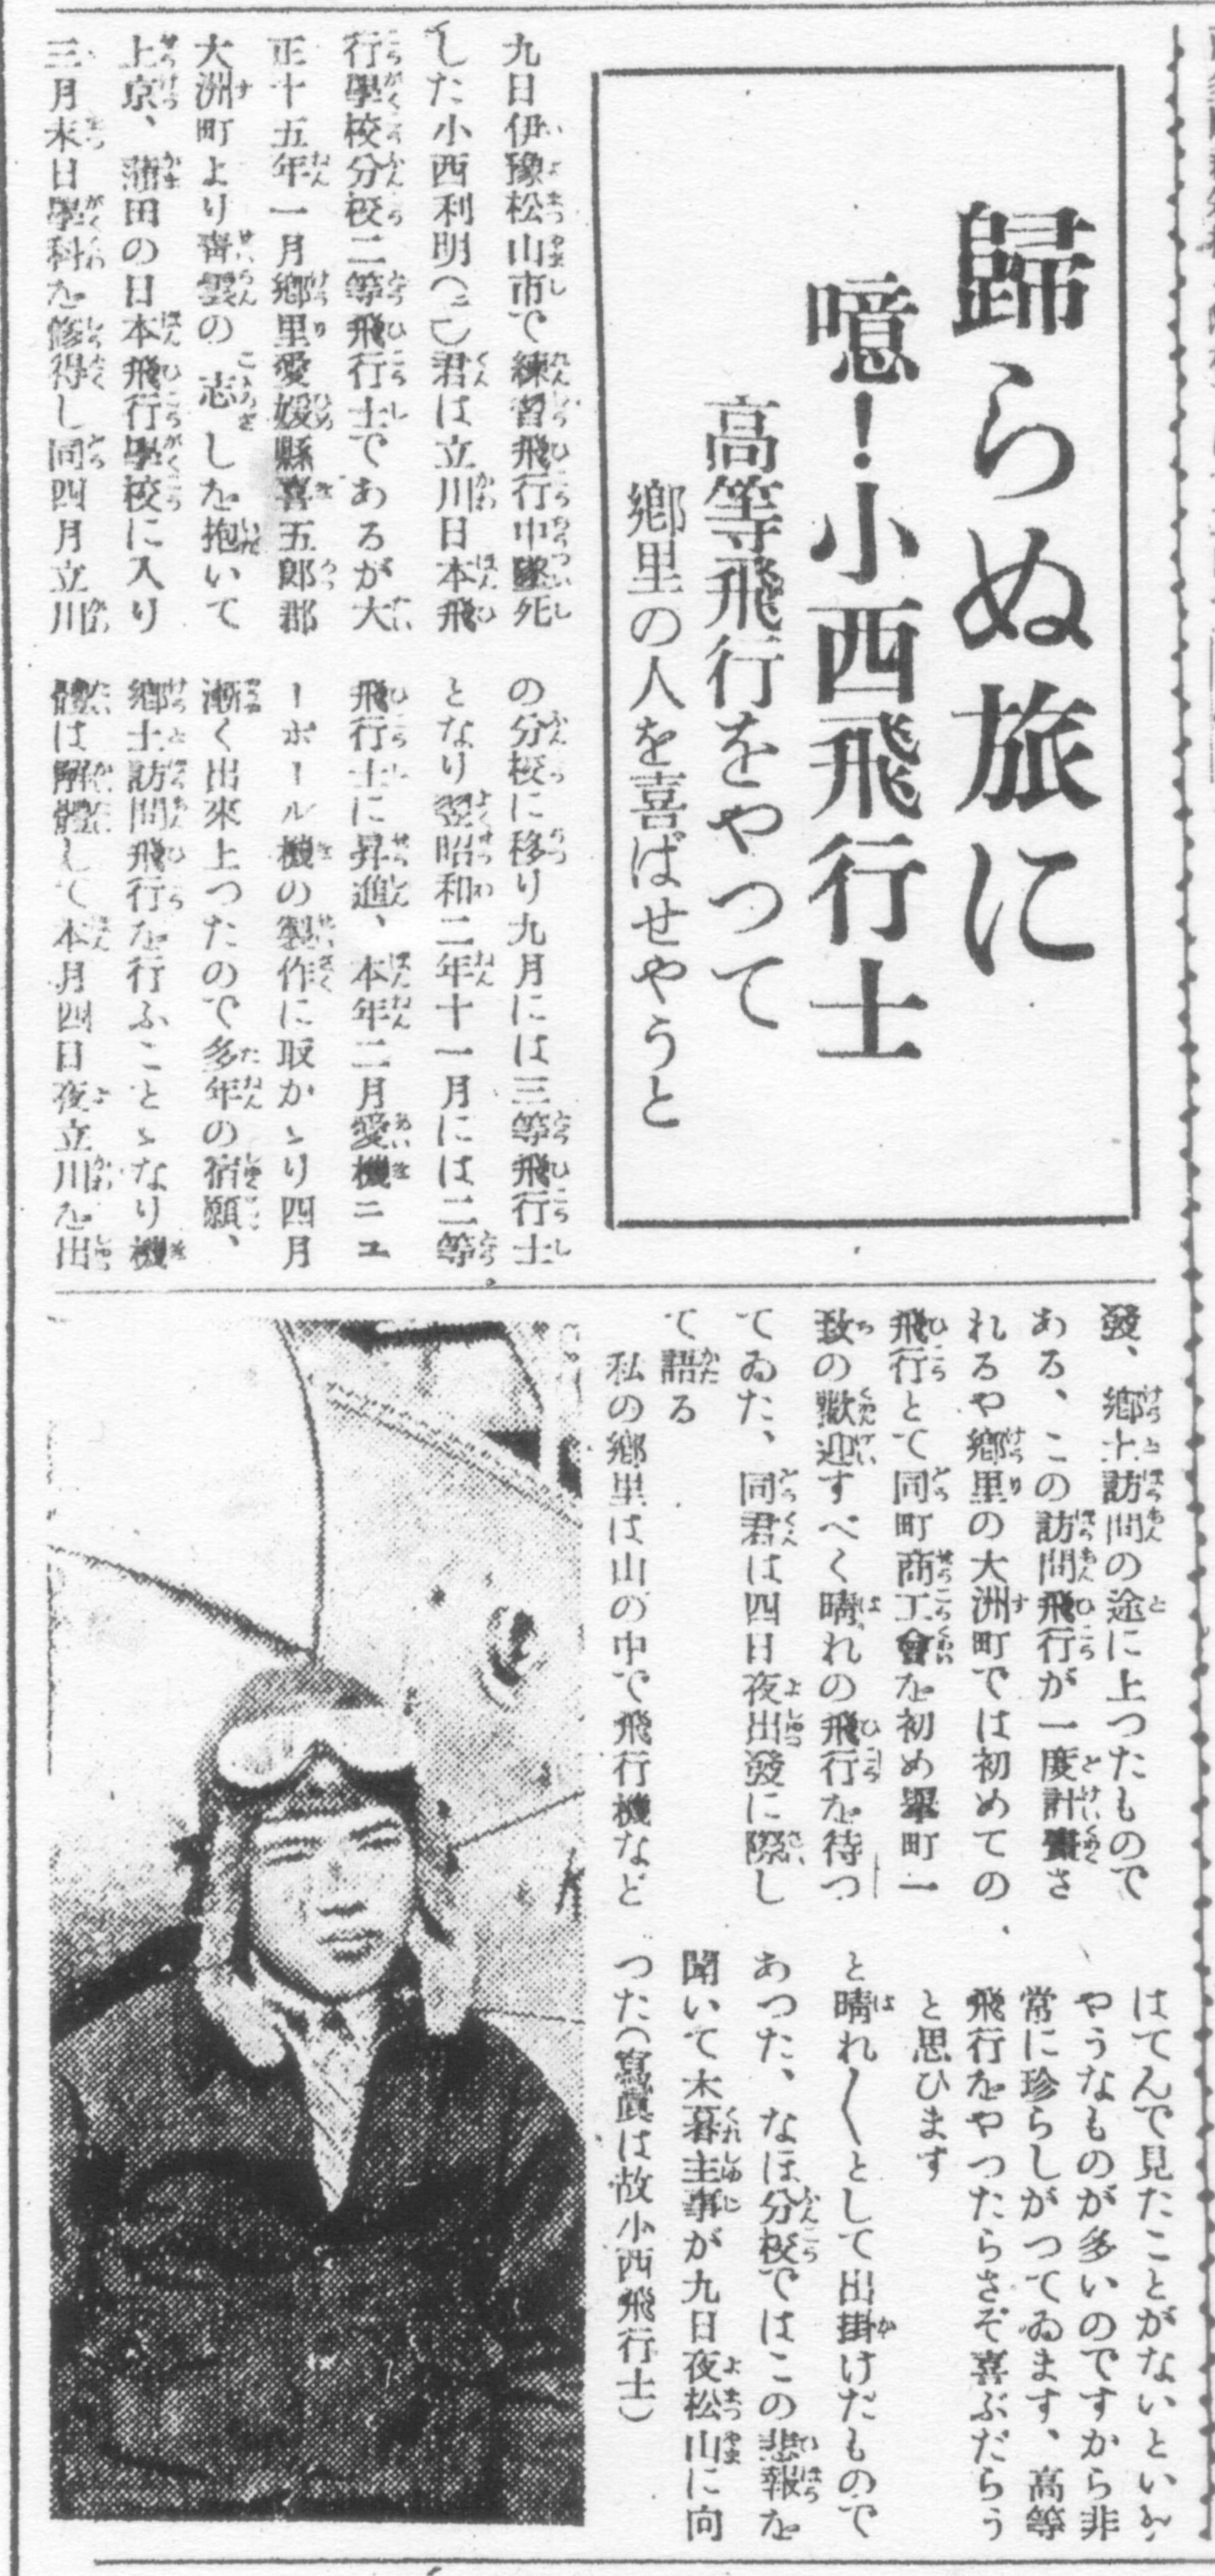 歸らぬ旅に
噫!小西飛行士
高等飛行をやつて
鄕里の人を喜ばせやうと
九日伊豫松山市で練習飛行中墜死
した小西利明(二一)君は立川日本飛
行學校分校二等飛行士であるが大
正十五年一月鄕里愛媛縣喜五郞郡
大洲町より靑雲の志しを抱いて
上京、蒲田の日本飛行學校に入り
三月末日學科を修得し同四月立川
の分校に移り九月には三等飛行士
となり翌昭和二年十一月には二等
飛行士に昇進、本年二月愛機ニユ
ーポール機の製作に取かゝり四月
漸く出來上つたので多年の宿願、
鄕土訪問飛行を行ふことゝなり機
體は解體して本月四日夜立川を出
發、鄕土訪問の途に上つたもので
ある、この訪問飛行が一度計畫さ
れるや鄕里の大洲町では初めての
飛行とて同町商工會を初め擧町一
致の歡迎すべく晴れの飛行を待つ
てゐた、同君は四日夜出發に際し
て語る
私の鄕里は山の中で飛行機など
はてんで見たことがないといふ
やうなものが多いのですから非
常に珍らしがつてゐます、高等
飛行をやつたらさぞ喜ぶだらう
と思ひます
と晴れ〳〵として出掛けたもので
あつた、なほ分校ではこの悲報を
聞いて木暮主事が九日夜松山に向
つた(寫眞は故小西飛行士)